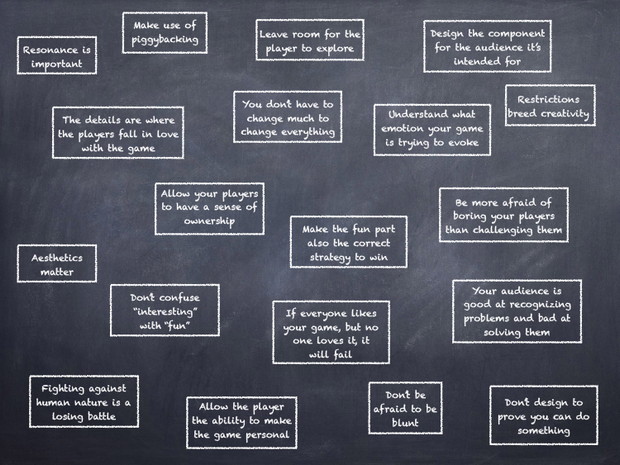 Resonance is
important
Make use of
piggybacking
Leave room for the
player to explore
Design the component
for the audience it's
intended for
The details are where
the players fall in love
with the game
You don't have to
change much to
change everything
Understand what
emotion your game
is trying to evoke
Restrictions
breed creativity
Allow your players
to have a sense of
ownership
Make the fun part
also the correct
strategy to win
Be more afraid of
boring your players
than challenging them
Aesthetics
matter
Don't confuse
"interesting"
with "fun"
If everyone likes
your game, but no
one loves it, it
will fail
Your audience is
good at recognizing
problems and bad at
solving them
Fighting against
human nature is a
losing battle
Allow the player
the ability to make
the game personal
Don't be
afraid to be
blunt
Don't design to
prove you can do
something